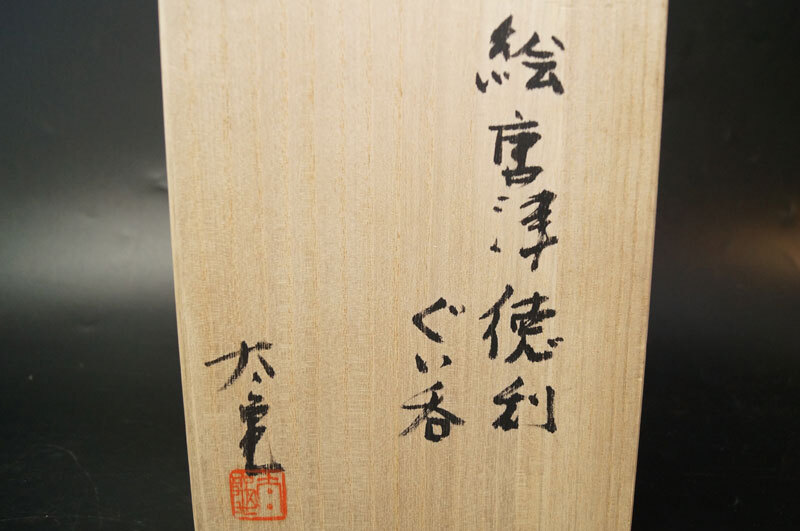 絵唐津徳利
ぐい呑
太亀